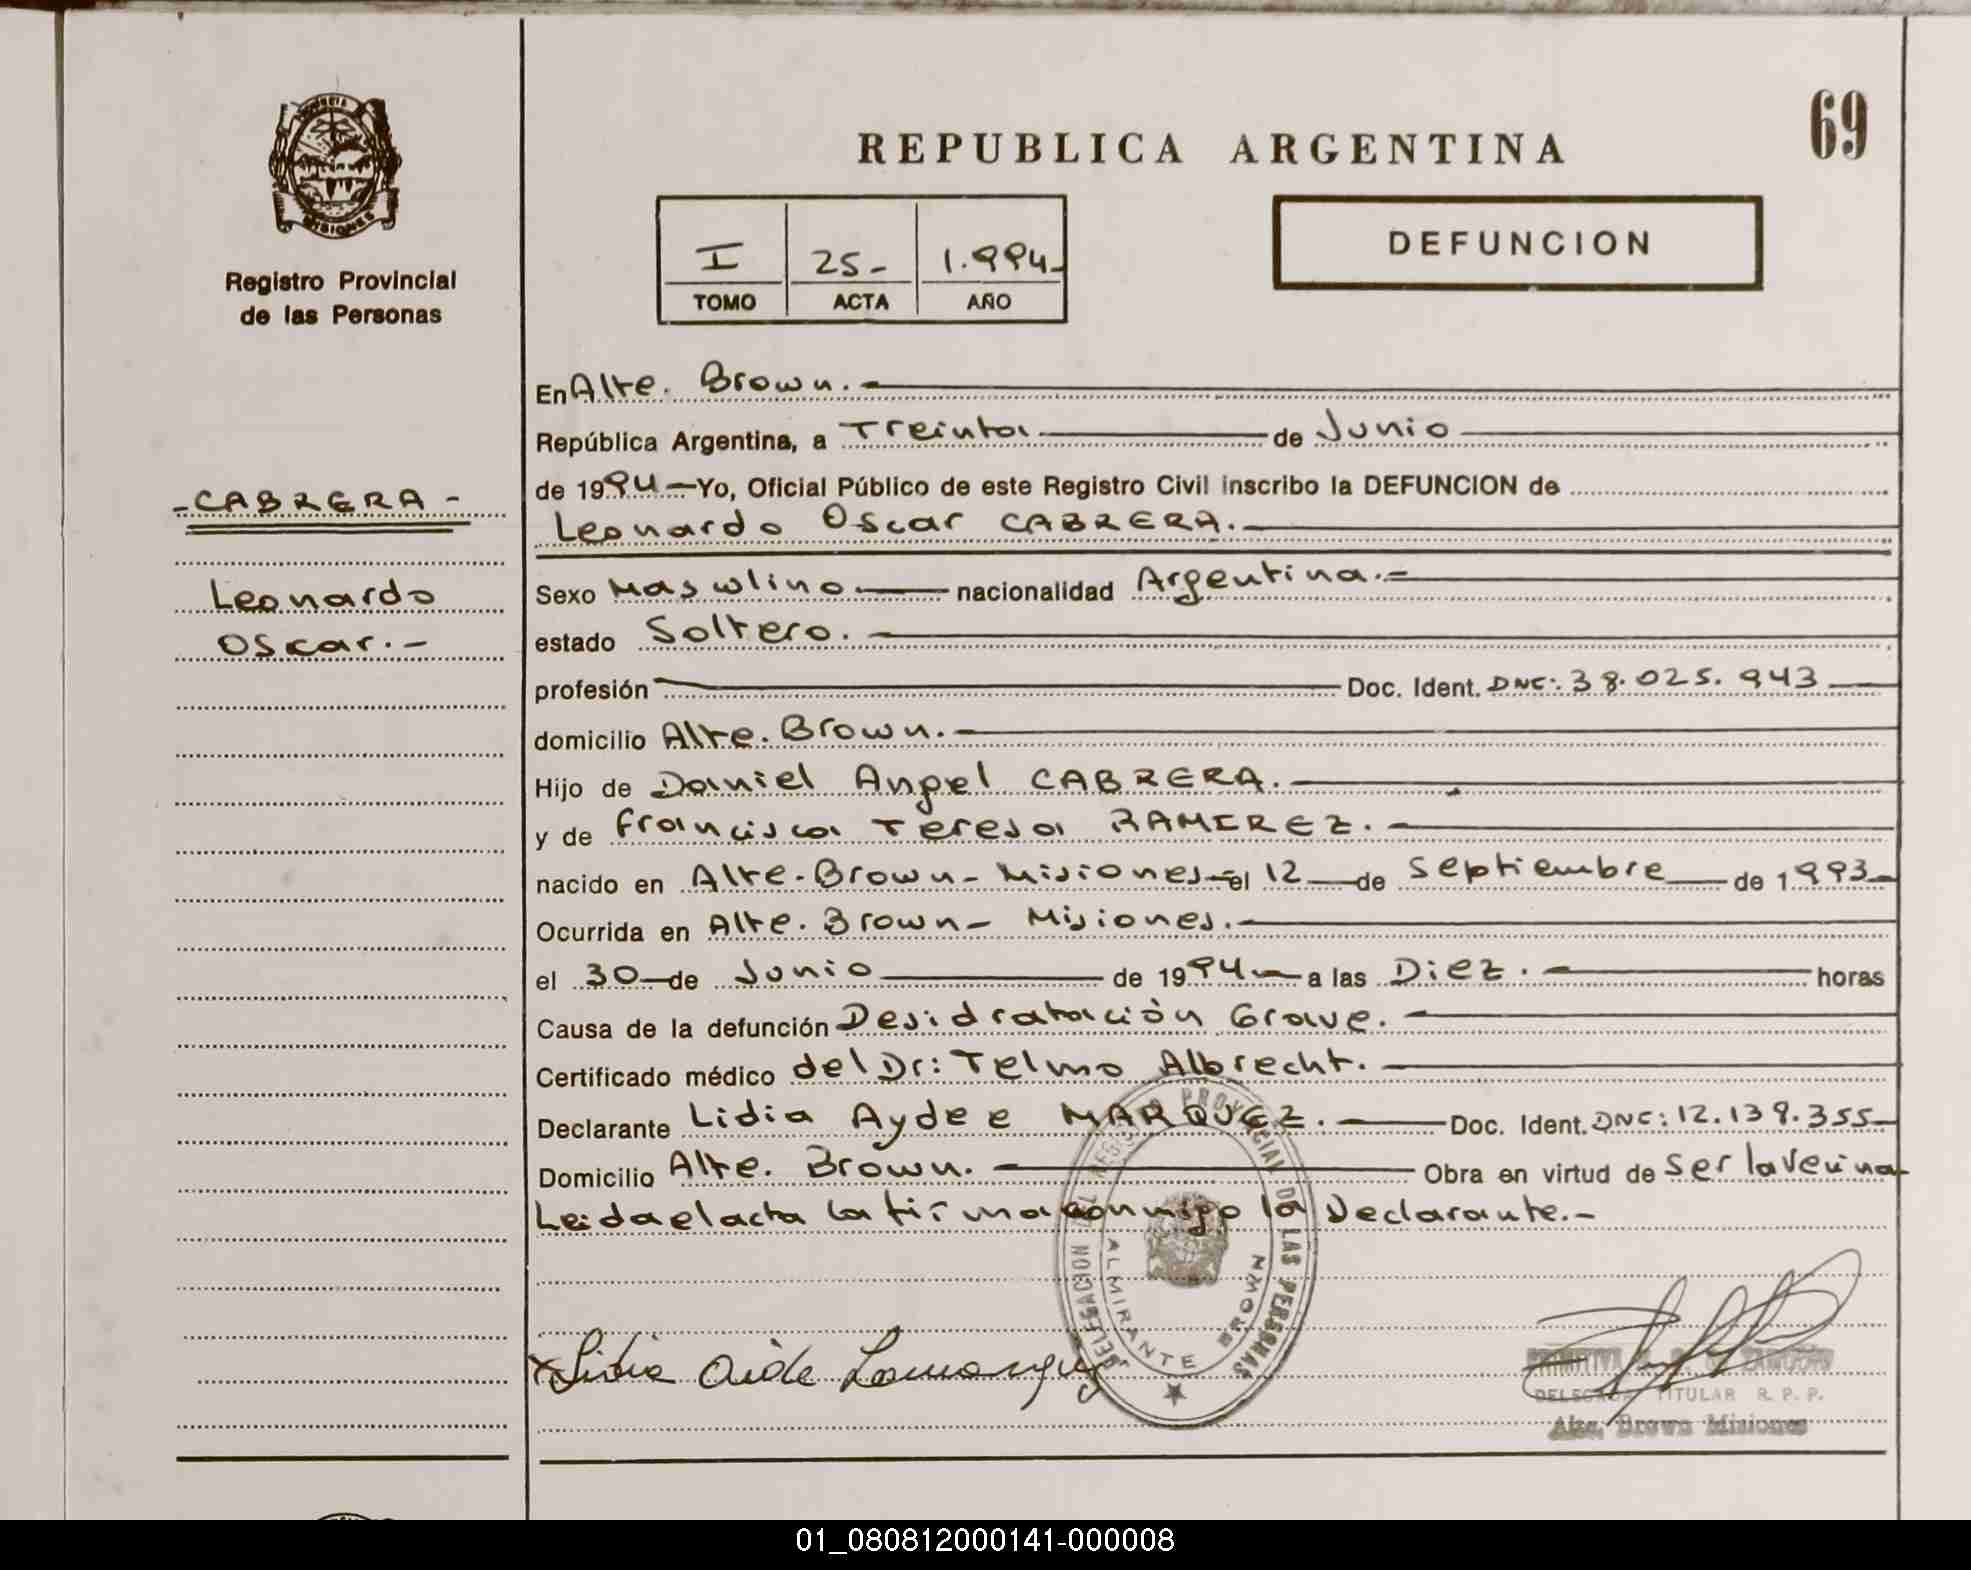 PROVINCIA
MISIONES
Registro Provincial
de las Personas
- CABRERA -
Leonardo
Oscar.-
69
REPUBLICA ARGENTINA
I 25- 1.994-
TOMO ACTA AÑO
DEFUNCION
En Alte. Brown.-
República Argentina, a Treinta de Junio
de 1994 - Yo, Oficial Público de este Registro Civil inscribo la DEFUNCION de
Leonardo Oscar CABRERA.-
Sexo Masculino nacionalidad Argentina.-
estado Soltero.-
profesión Doc. Ident. DNI: 38.025.943
domicilio Alte. Brown.-
Hijo de Daniel Angel CABRERA.-
y de Francisca Teresa RAMIREZ.-
nacido en Alte. Brown - Misiones - el 12 de Septiembre de 1993-
Ocurrida en Alte. Brown - Misiones.-
el 30 de Junio de 1994 - a las Diez.- horas
Causa de la defunción Desidratación Grave.-
Certificado médico del Dr: Telmo Albrecht.-
Declarante Lidia Aydee MARQUEZ.- Doc. Ident. DNI: 12.139.355-
Domicilio Alte. Brown.- Obra en virtud de ser la Vecina
Leida el acta la firma conmigo la Declarante.-
DELEGACION DEL REGISTRO PROVINCIAL DE LAS PERSONAS
ALMIRANTE BROWN
x Lidia Aide
PRIMITIVA
DELEGADA TITULAR R. P. P.
Alte. Brown Misiones
01_080812000141-000008